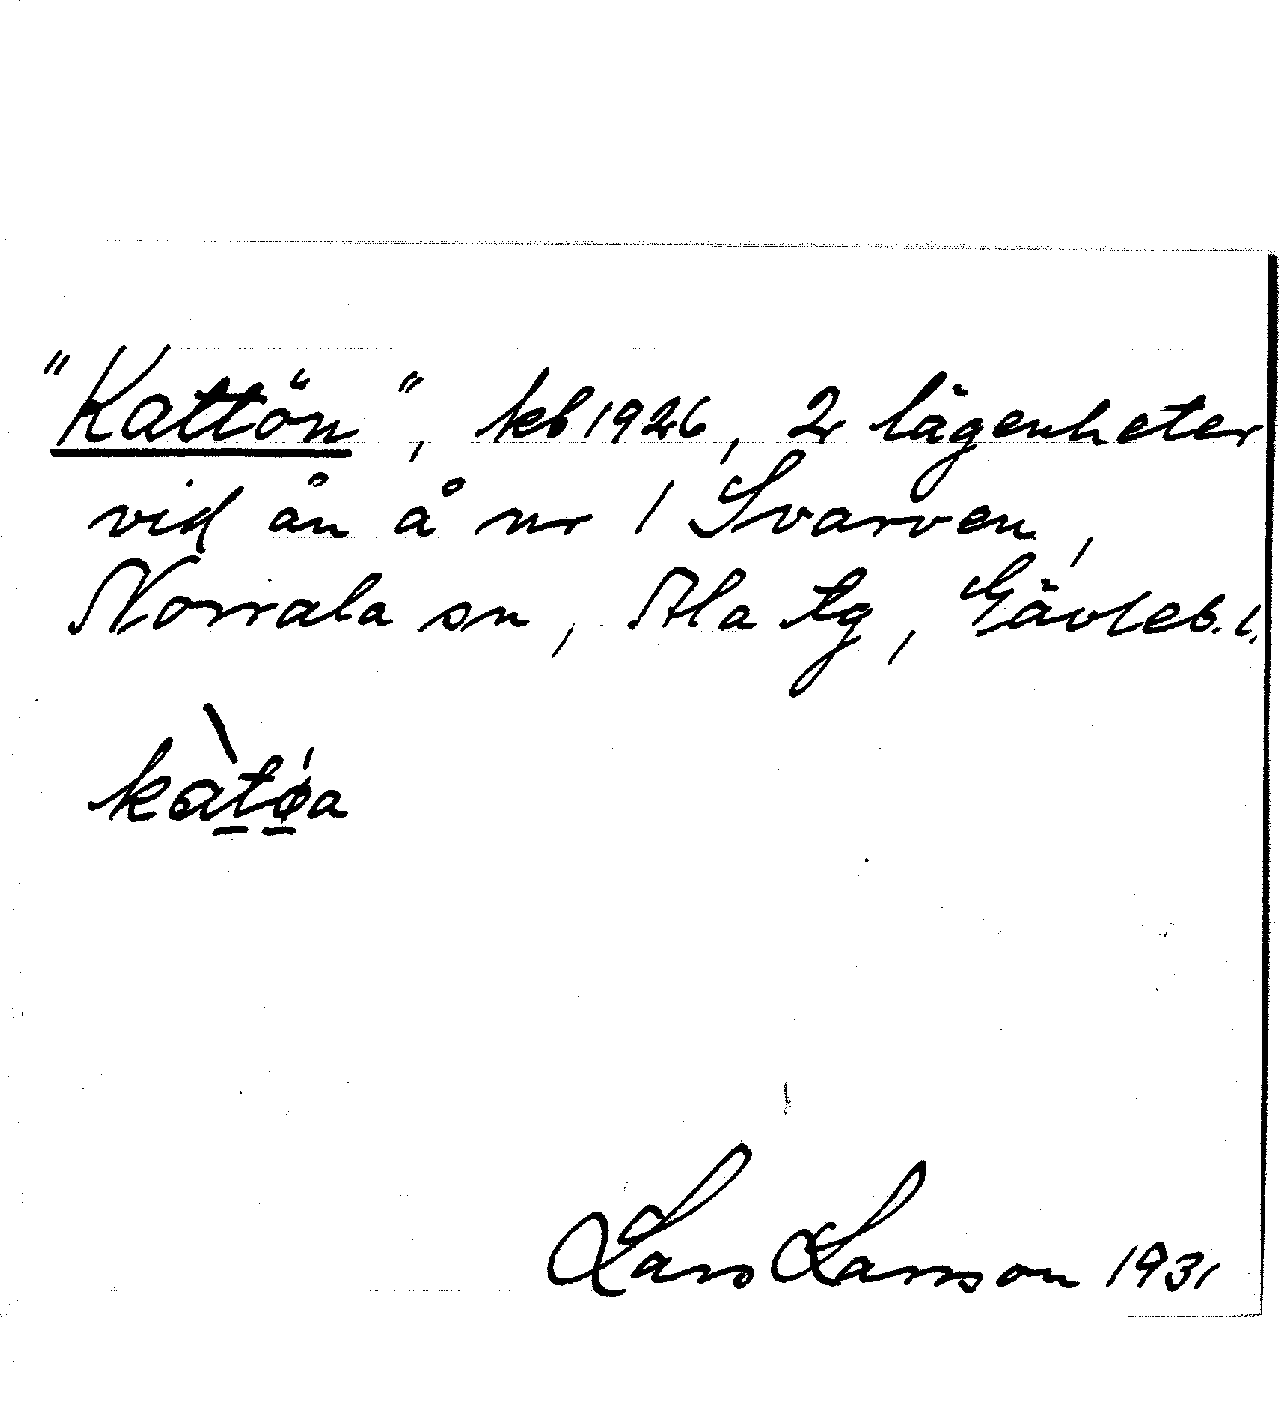 "Kattön", kb 1926, 2 lägenheter
vid ån å nr 1 Svarven,
Norrala sn, Ala tg, Gävleb. l.
kàtø̀a
Lars Larsson 1931